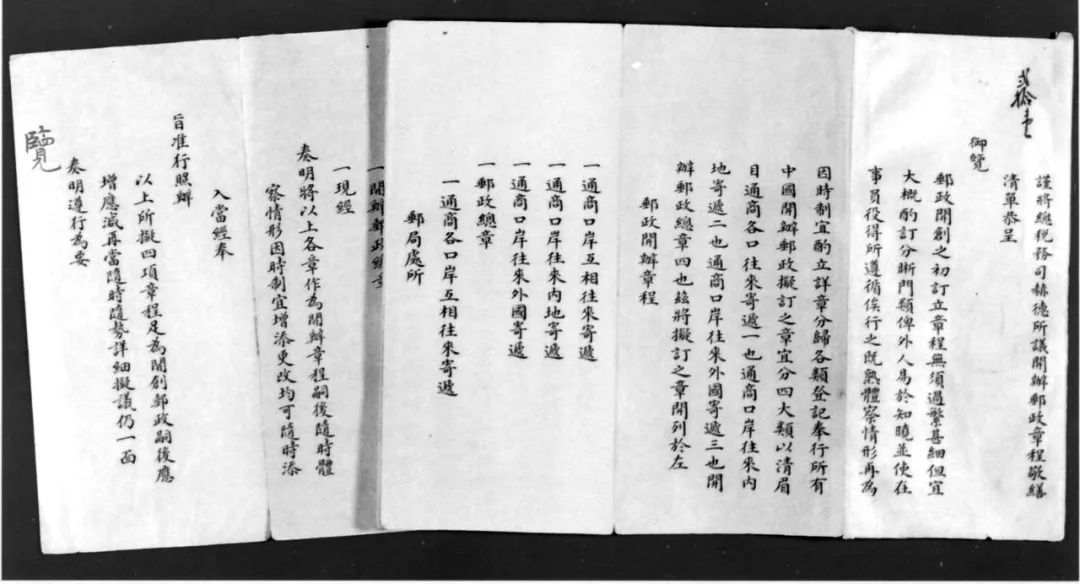 謹將總稅務司赫德所議開辦郵政章程敬繕
清單恭呈
御覽
郵政開創之初訂立章程無須過繁甚細但宜
大概酌訂分晰門類俾外人易於知曉並使在
事員役得所遵循俟行之既熟體察情形再為
因時制宜酌立詳章分歸各類登記奉行所有
中國開辦郵政擬訂之章宜分四大類以清眉
目通商各口往來寄遞一也通商口岸往來內
地寄遞二也通商口岸往來外國寄遞三也開
辦郵政總章四也茲將擬訂之章開列於左
郵政開辦章程
一通商口岸互相往來寄遞
一通商口岸往來內地寄遞
一通商口岸往來外國寄遞
一郵政總章
一通商各口岸互相往來寄遞
郵局處所
一開辦郵政總章
一現經
奏明將以上各章作為開辦章程嗣後隨時體
察情形因時制宜增添更改均可隨時添
入當經奉
旨准行照辦
以上所擬四項章程足為開創郵政嗣後應
增應減再當隨時隨勢詳細擬議仍一面
奏明遵行為要
覽